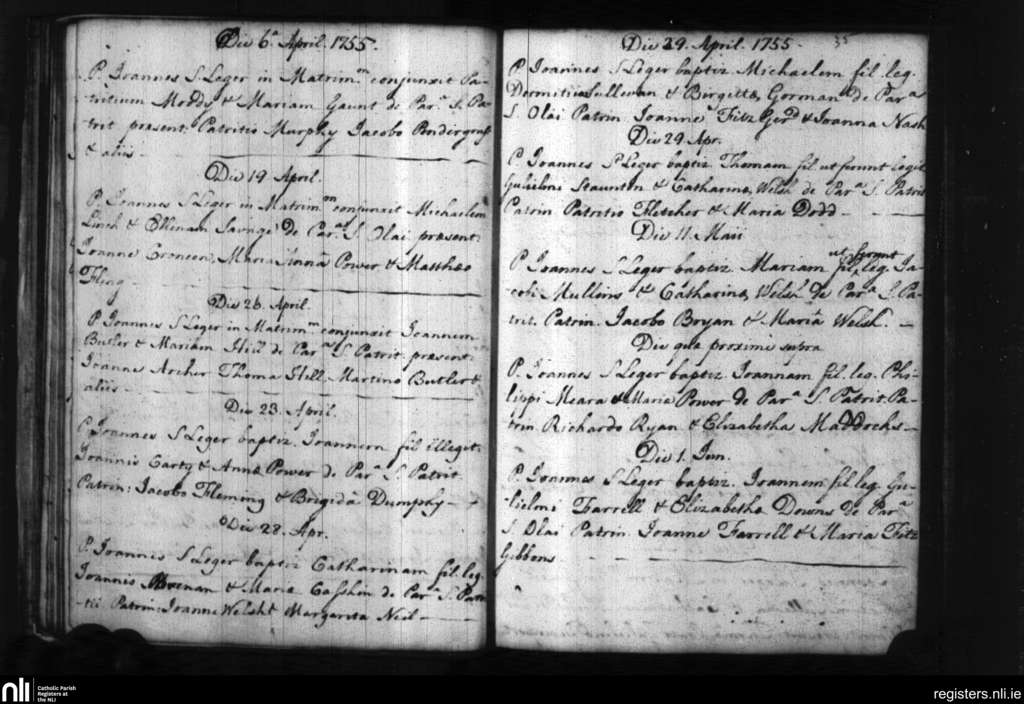 Die 6a April. 1755.
P. Joannes S Leger in Matrimm conjunxit Pa-
tritium Modds & Mariam Gaunt de Para S. Pa-
trit present. Patritio Murphy Jacobo Prdirgrass
& aliis
Die 19 April.
P. Joannes S Leger in Matrimm conjunxit Michaelem
Linch & Ellenam Savage de Para S Olai present.
Joanne Croneen, Maria Anna Power & Matthæo
Fling
Die 26. April.
P. Joannes S Leger in Matrimm conjunxit Joannem
Butler & Mariam Hill de Para S Patrit. present.
Joanna Archer Thoma Hill Martino Butler &
aliis
Die 23. April.
P. Joannes S Leger baptiz. Joannem fil illegit.
Joannis Carty & Annæ Power de Para S. Patrit
Patrin: Jacobo Fleming & Brigida Dumphy
Die 28. Apr.
P. Joannis S Leger baptiz Catharinam fil. leg.
Joannis & Mariæ Casshin de Para S. Patri-
tii Patrin: Joanne Welsh & Margarita Neil
Die 29. April. 1755
35
P. Joannes S Leger baptiz. Michaelem fil. leg.
Dermitii Sullevan & Birgittæ Gorman de Para
S. Olai Patrin Joanne Fitz Gerd & Joanna Nash
Die 29. Apr.
P. Joannes S Leger baptiz. Thomam fil ut ferunt legit.
Gulielmi Staunton & Catharinæ Welsh de Para S. Patrit
Patrin Patritio Fletcher & Maria Dodd
Die 11. Maii
P Joannes S Leger baptiz. Mariam fil. ut ferunt leg. Ja-
cobi Mullins & Catharinæ Welsh de Para S. Pa-
trit. Patrin. Jacobo Bryan & Maria Welsh.
Die quæ proxime supra
P. Joannes S Leger baptiz. Joannam fil. leg. Phi-
lippi Meara & Mariæ Power de Para S. Patrit. Pa-
trin Richardo Ryan & Elizabetha Maddocks
Die 1. Jun.
P. Joannes S Leger baptiz. Joannem fil leg. Gu-
lielmi Farrell & Elizabethæ Downs de Para
S. Olai Patrin. Joanne Farrell & Maria Fitz
Gibbons
nli
Catholic Parish
Registers at
the NLI
registers.nli.ie